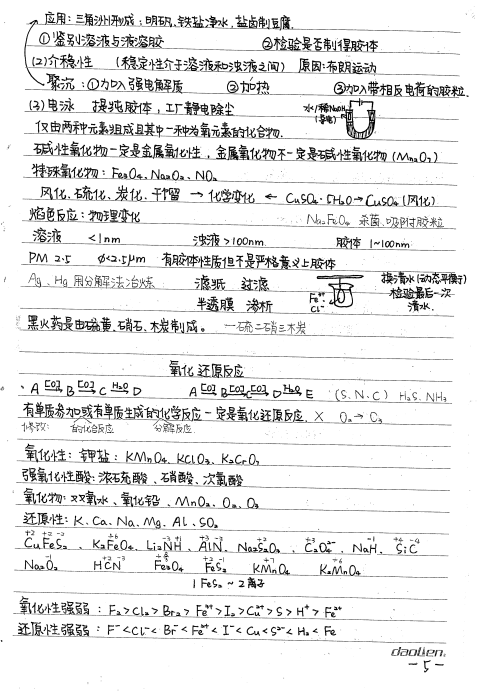 应用：三角洲形成；明矾、铁盐净水，盐卤制豆腐.
①鉴别溶液与液溶胶 ②检验是否制得胶体
(2)介稳性 (稳定性介于溶液和浊液之间) 原因：布朗运动
聚沉：①加入强电解质 ②加热 ③加入带相反电荷的胶粒.
(3)电泳 提纯胶体，工厂静电除尘 水/稀NaOH (导电)
仅由两种元素组成且其中一种为氧元素的化合物.
碱性氧化物一定是金属氧化性，金属氧化物不一定是碱性氧化物(Mn₂O₇)
特殊氧化物：Fe₃O₄、Na₂O₂、NO₂
风化、硫化、炭化、干馏 → 化学变化 ← CuSO₄·5H₂O→CuSO₄(风化)
焰色反应：物理变化 Na₂FeO₄ 杀菌、吸附胶粒
溶液 <1nm 浊液>100nm 胶体 1~100nm
PM 2.5 φ<2.5μm 有胶体性质但不是严格意义上胶体
Ag、Hg 用分解法冶炼 滤纸 过滤 换清水(动态平衡)
半透膜 渗析 Fe³⁺ Cl⁻ 检验最后一次清水.
黑火药是由硫黄、硝石、木炭制成。 一硫二硝三木炭
氧化还原反应
A [O]→ B [O]→ C H₂O→ D A [O]→ B [O]→ C [O]→ D H₂O→ E (S、N、C) H₂S、NH₃
有单质参加或有单质生成的化学反应一定是氧化还原反应. × O₂→O₃
修改： 的化合反应 分解反应
氧化性：钾盐：KMnO₄、KClO₃、K₂CrO₇
强氧化性酸：浓硫酸、硝酸、次氯酸
氧化物：双氧水、氧化铅、MnO₂、O₂、O₃
还原性：K、Ca、Na、Mg、Al、SO₂
CuFeS₂、K₂FeO₄、Li₂NH、AlN、Na₂S₂O₃、C₂O₄²⁻、NaH、SiC
Na₂O₂ HCN Fe₃O₄ FeS₂ KMnO₄ K₂MnO₄
1 FeS₂ ~ 2离子
氧化性强弱：F₂>Cl₂>Br₂>Fe³⁺>I₂>Cu²⁺>S>H⁺>Fe²⁺
还原性强弱：F⁻<Cl⁻<Br⁻<Fe²⁺<I⁻<Cu<S²⁻<H₂<Fe
daolien.
-5-